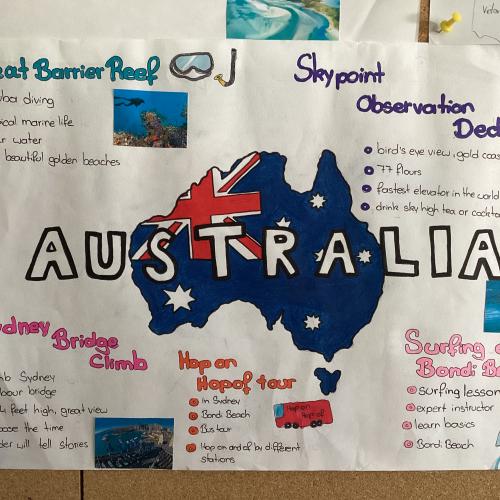 eat Barrier Reef
uba diving
ical marine life
r water
beautiful golden beaches
Skypoint
Observation
Deck
bird's eye view, gold coas
77 flours
fastest elevator in the world
drink sky high tea or cockta
AUSTRALIA
dney Bridge
Climb
mb Sydney
bour bridge
4 feet high, great view
oose the time
der will tell stories
Hop on
Hop of tour
in Sydney
Bondi Beach
Bus tour
Hop on and of by different
stations
Hop on
Hop of
Surfing
Bondi Be
surfing lesson
expert instructor
learn basics
Bondi Beach